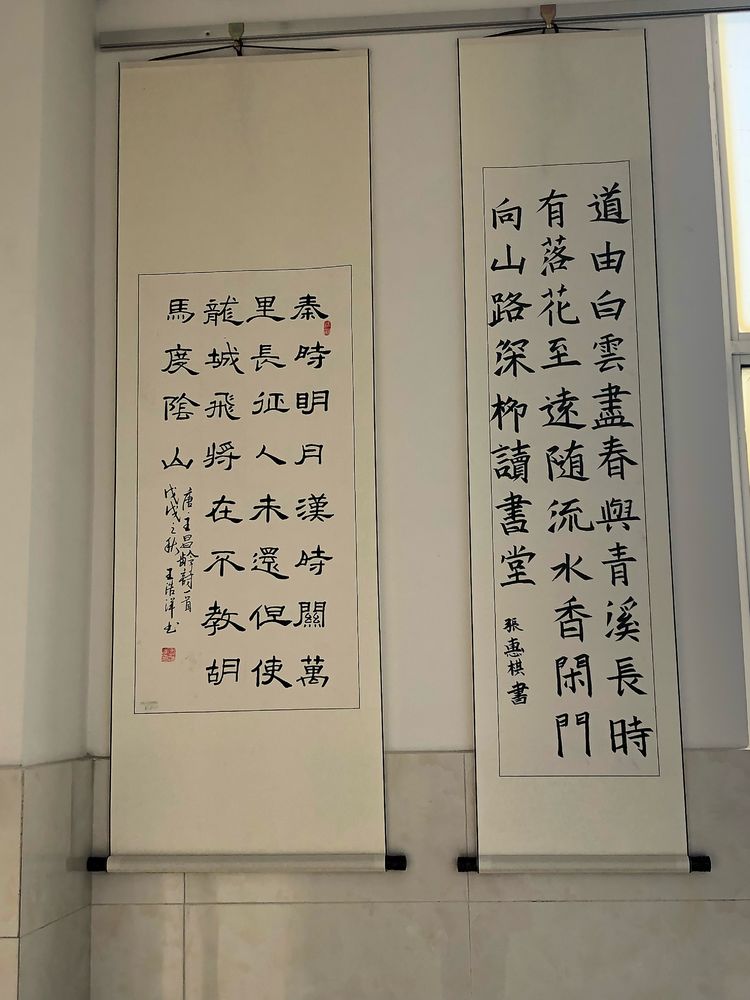 道由白雲盡春與青溪長時
有落花至遠随流水香閑門
向山路深柳讀書堂
張惠棋書
秦時明月漢時關萬
里長征人未還但使
龍城飛將在不教胡
馬度陰山
唐·王昌齡詩一首
戊戌之秋 王浩洋书